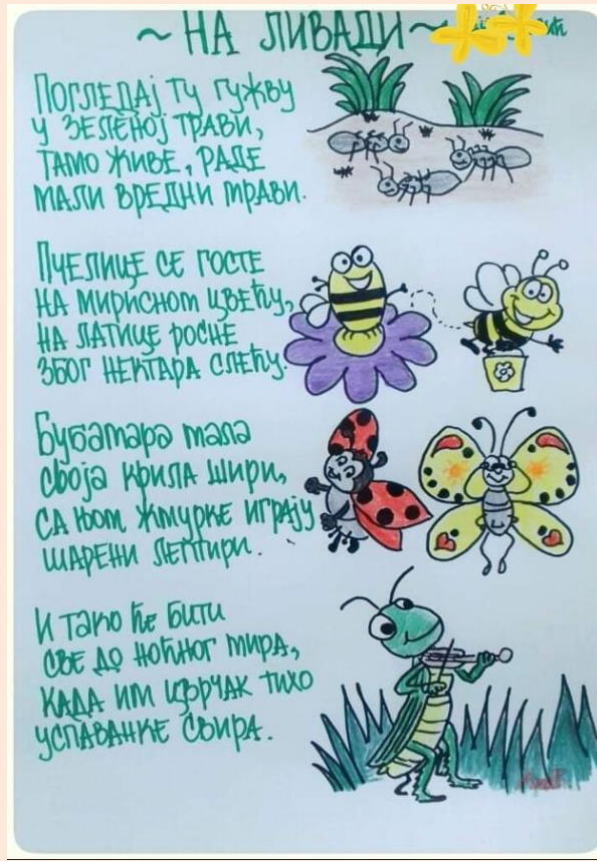 ~ НА ЛИВАДИ ~
ПОГЛЕДАЈ ТУ ГУЖВУ
У ЗЕЛЕНОЈ ТРАВИ,
ТАМО ЖИВЕ, РАДЕ
МАЛИ ВРЕДНИ МРАВИ.
ПЧЕЛИЦЕ СЕ ГОСТЕ
НА МИРИСНОМ ЦВЕЋУ,
НА ЛАТИЦЕ РОСНЕ
ЗБОГ НЕКТАРА СЛЕЋУ.
Бубамара мала
своја крила шири,
СА њом ЖМУРКЕ ИГРАЈУ
ШАРЕНИ ЛЕПТИРИ.
И тако ће БИТИ
СВЕ ДО НОЋНОГ МИРА,
КАДА ИМ ЦВРЧАК ТИХО
УСПАВАНКЕ СВИРА.